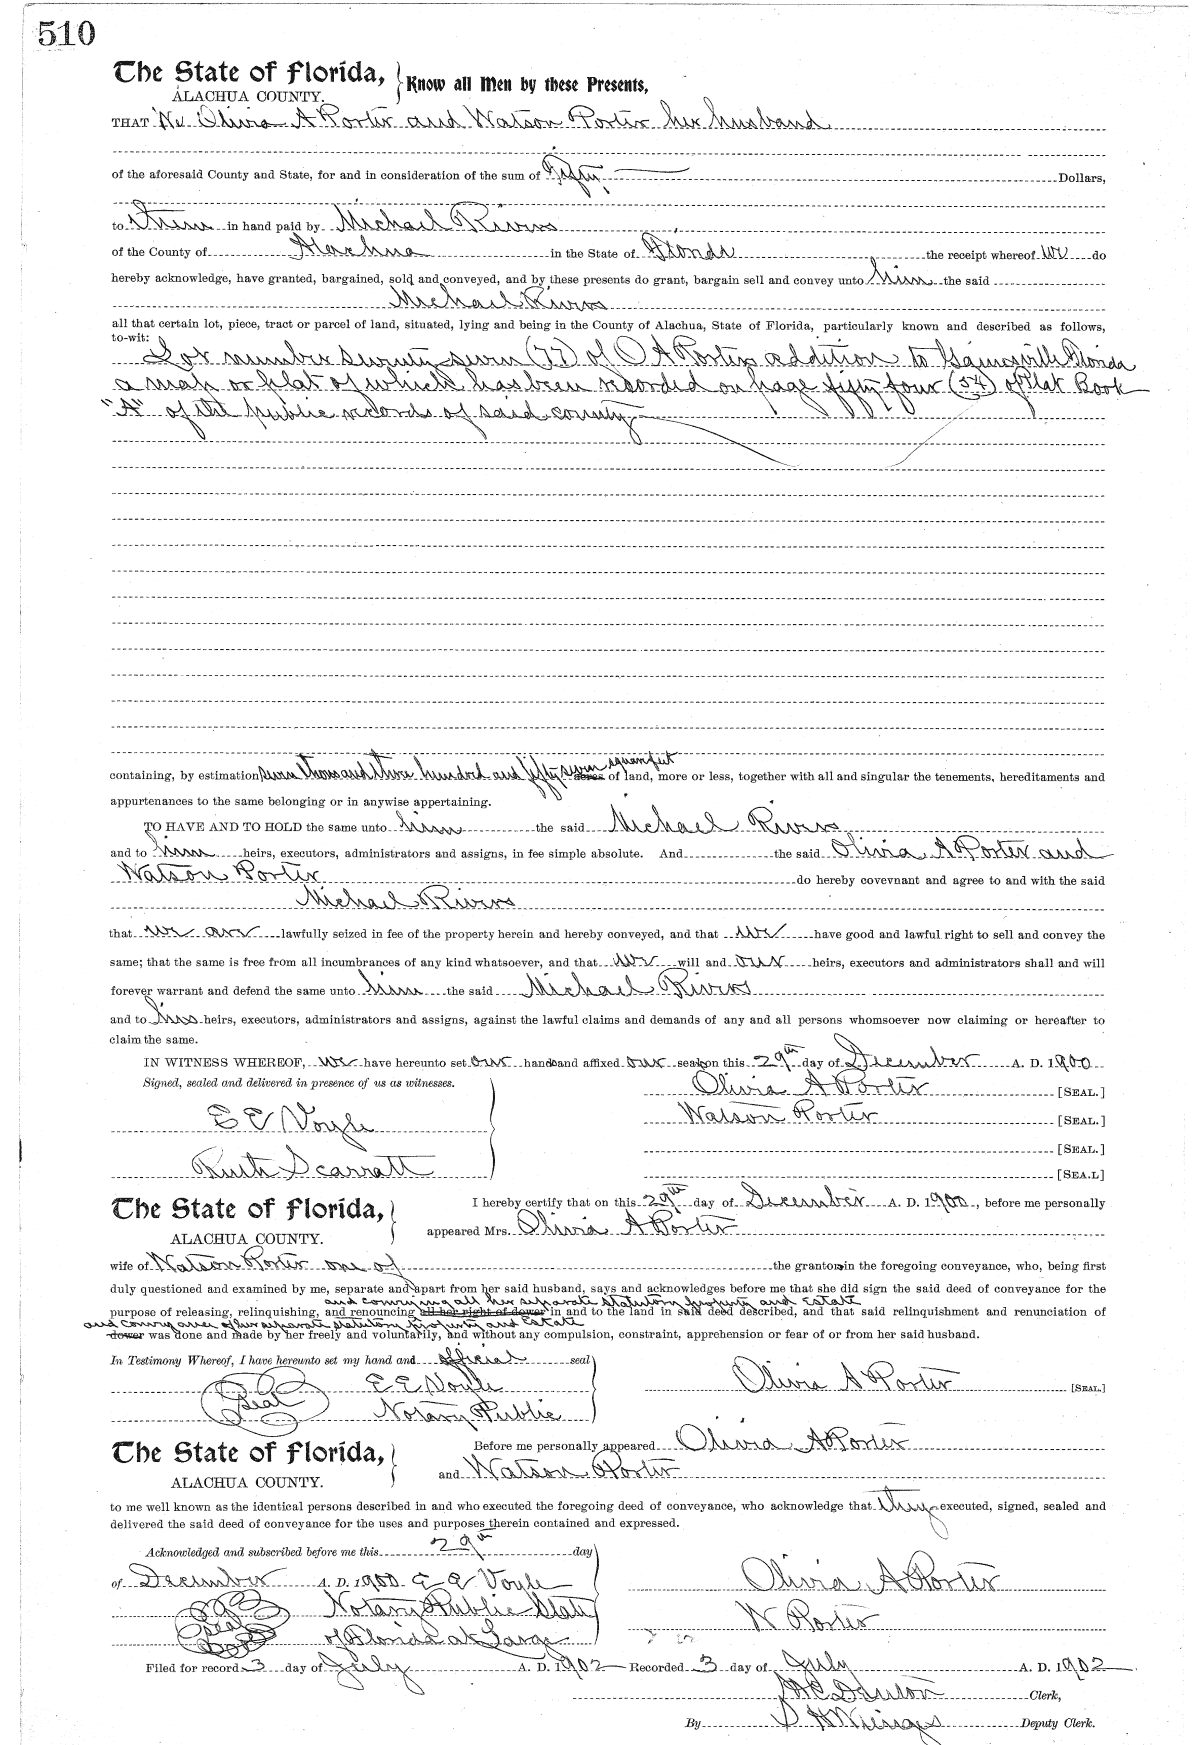 510
The State of Florida, Know all Men by these Presents,
ALACHUA COUNTY.
THAT We Olivia A Porter and Watson Porter her husband
of the aforesaid County and State, for and in consideration of the sum of Fifty Dollars,
to them in hand paid by Michael Rivers
of the County of Alachua in the State of Florida the receipt whereof we do
hereby acknowledge, have granted, bargained, sold and conveyed, and by these presents do grant, bargain sell and convey unto him the said
Michael Rivers
all that certain lot, piece, tract or parcel of land, situated, lying and being in the County of Alachua, State of Florida, particularly known and described as follows,
to-wit:
Lot number Seventy seven (77) of O A Porters addition to Gainesville Florida
a map or plat of which has been recorded on page fifty four (54) of Plat Book
"A" of the public records of said county
containing, by estimation seven thousand three hundred and fifty seven square feet acres of land, more or less, together with all and singular the tenements, hereditaments and
appurtenances to the same belonging or in anywise appertaining.
TO HAVE AND TO HOLD the same unto him the said Michael Rivers
and to him heirs, executors, administrators and assigns, in fee simple absolute. And the said Olivia A Porter and
Watson Porter do hereby covevnant and agree to and with the said
Michael Rivers
that we are lawfully seized in fee of the property herein and hereby conveyed, and that we have good and lawful right to sell and convey the
same; that the same is free from all incumbrances of any kind whatsoever, and that we will and our heirs, executors and administrators shall and will
forever warrant and defend the same unto him the said Michael Rivers
and to his heirs, executors, administrators and assigns, against the lawful claims and demands of any and all persons whomsoever now claiming or hereafter to
claim the same.
IN WITNESS WHEREOF, we have hereunto set our hands and affixed our seals on this 29th day of December A. D. 1900
Signed, sealed and delivered in presence of us as witnesses. Olivia A Porter [SEAL.]
E E Voyle Watson Porter [SEAL.]
[SEAL.]
Ruth Scarratt [SEA.L]
The State of Florida, I hereby certify that on this 29th day of December A. D. 1900, before me personally
ALACHUA COUNTY. appeared Mrs. Olivia A Porter
wife of Watson Porter one of the grantors in the foregoing conveyance, who, being first
duly questioned and examined by me, separate and apart from her said husband, says and acknowledges before me that she did sign the said deed of conveyance for the
and conveying all her separate statutory property and Estate
purpose of releasing, relinquishing, and renouncing all her right of dower in and to the land in said deed described, and that said relinquishment and renunciation of
and conveyance of her separate statutory property and Estate
dower was done and made by her freely and voluntarily, and without any compulsion, constraint, apprehension or fear of or from her said husband.
In Testimony Whereof, I have hereunto set my hand and official seal
Seal E E Voyle Olivia A Porter [SEAL.]
Notary Public
The State of Florida, Before me personally appeared Olivia A Porter
ALACHUA COUNTY. and Watson Porter
to me well known as the identical persons described in and who executed the foregoing deed of conveyance, who acknowledge that they executed, signed, sealed and
delivered the said deed of conveyance for the uses and purposes therein contained and expressed.
Acknowledged and subscribed before me this 29th day
of December A. D. 1900 E E Voyle Olivia A Porter
Seal Notary Public State W Porter
of Florida at Large
Filed for record 3 day of July A. D. 1902 Recorded 3 day of July A. D. 1902
H C Denton Clerk,
By S H Wienges Deputy Clerk.